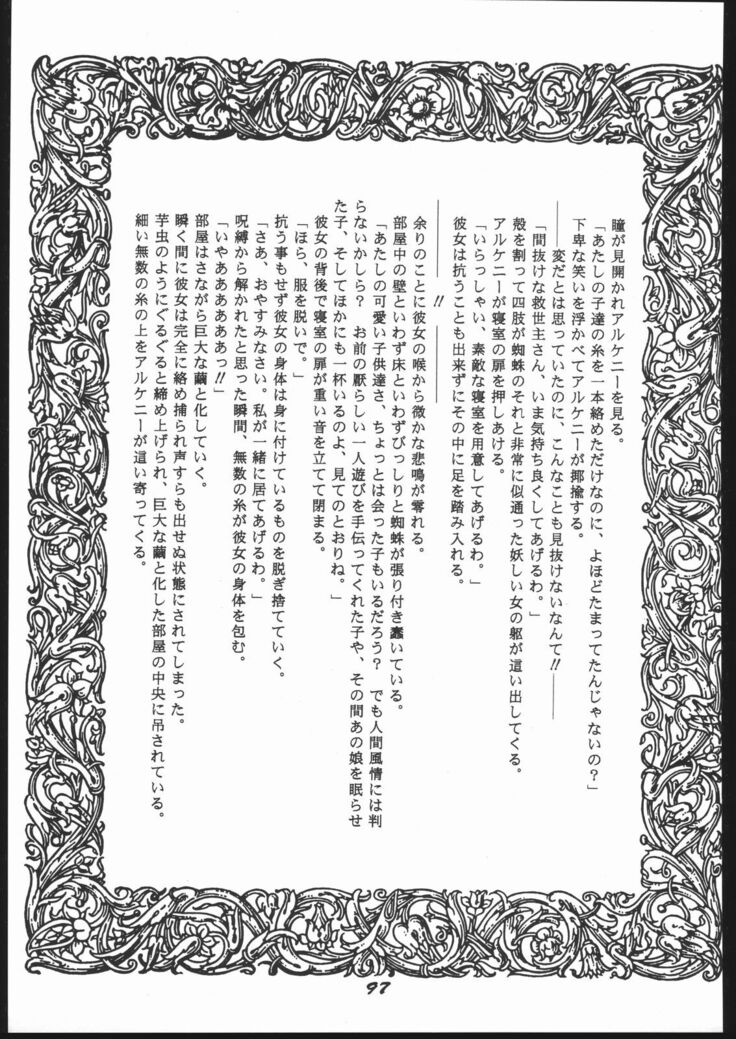 瞳が見開かれアルケニーを見る。
「あたしの子達の糸を一本絡めただけなのに、よほどたまってたんじゃないの？」
下卑な笑いを浮かべてアルケニーが揶揄する。
――変だとは思っていたのに、こんなことも見抜けないなんて!!――
「間抜けな救世主さん、いま気持ち良くしてあげるわ。」
殻を割って四肢が蜘蛛のそれと非常に似通った妖しい女の躯が這い出してくる。
アルケニーが寝室の扉を押しあける。
「いらっしゃい、素敵な寝室を用意してあげるわ。」
彼女は抗うことも出来ずにその中に足を踏み入れる。
――――!!――――
余りのことに彼女の喉から微かな悲鳴が零れる。
部屋中の壁といわず床といわずびっしりと蜘蛛が張り付き蠢いている。
「あたしの可愛い子供達さ、ちょっとは会った子もいるだろう？　でも人間風情には判
らないかしら？　お前の厭らしい一人遊びを手伝ってくれた子や、その間あの娘を眠らせ
た子、そしてほかにも一杯いるのよ、見てのとおりね。」
彼女の背後で寝室の扉が重い音を立てて閉まる。
「ほら、服を脱いで。」
抗う事もせず彼女の身体は身に付けているものを脱ぎ捨てていく。
「さあ、おやすみなさい。私が一緒に居てあげるわ。」
呪縛から解かれたと思った瞬間、無数の糸が彼女の身体を包む。
「いやああああああっ!!」
部屋はさながら巨大な繭と化していく。
瞬く間に彼女は完全に絡め捕られ声すらも出せぬ状態にされてしまった。
芋虫のようにぐるぐると締め上げられ、巨大な繭と化した部屋の中央に吊されている。
細い無数の糸の上をアルケニーが這い寄ってくる。
97